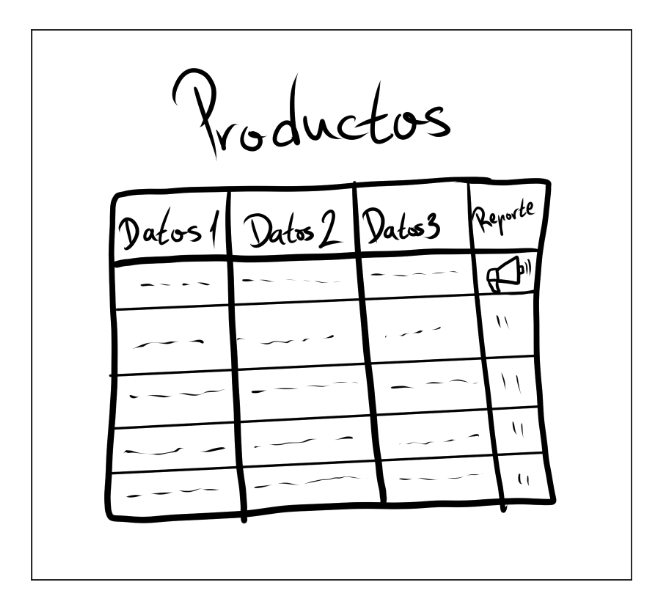 Productos
Datos 1 Datos 2 Datos 3 Reporte
" 
"
"
"